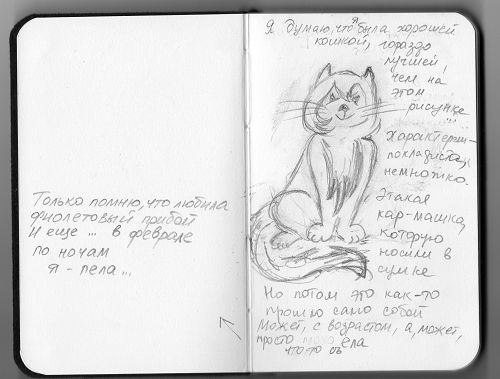 Я думаю, что я была хорошей
кошкой, гораздо
лучшей,
чем на
этом
рисунке
покладиста,
немножко.
Этакая
кар-машка,
которую
носили в
сумке
Но потом это как-то
прошло само собой
Может, с возрастом, а, может,
просто ела
что-то съ
Только помню, что любила
фиолетовый прибой
И еще ... в феврале
по ночам
я - пела ...